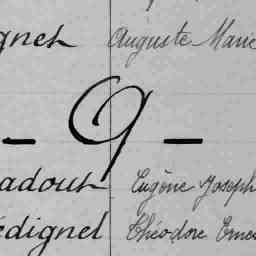 gnet Auguste Marie
- 9 -
adout Eugène Joseph
édignel Théodore Ernes